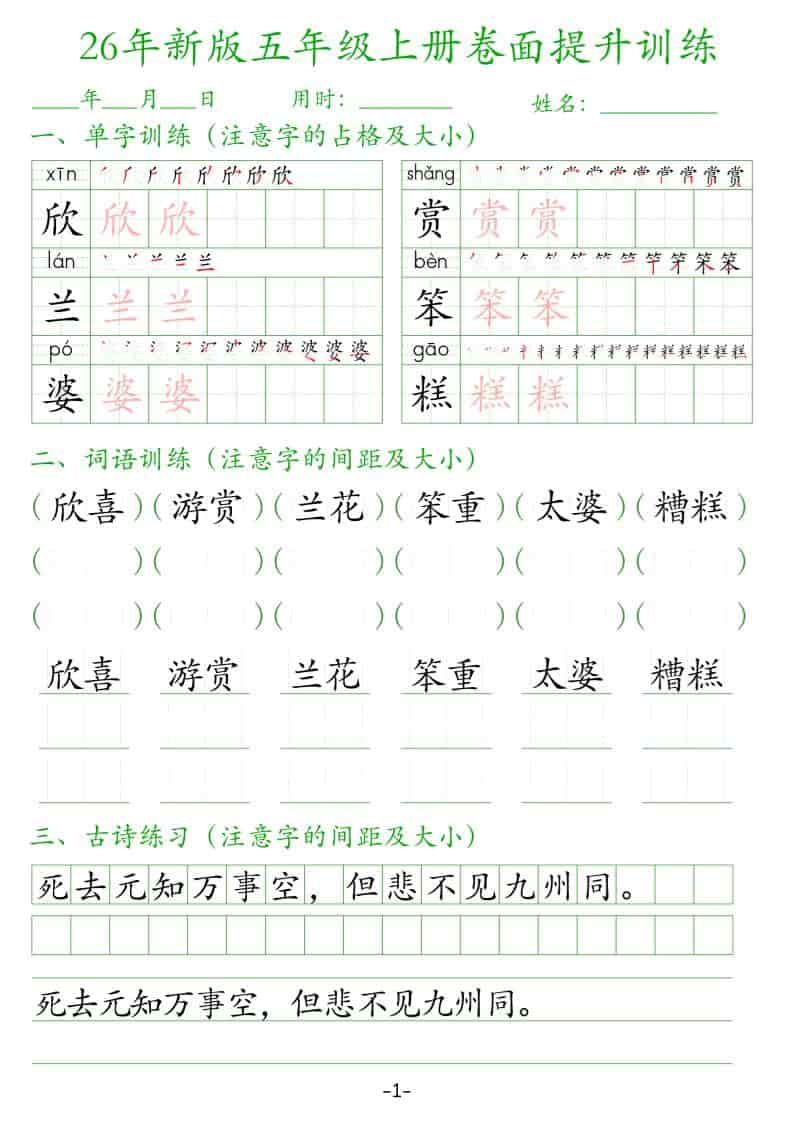 26年新版五年级上册卷面提升训练
____年___月___日 用时：________ 姓名：__________
一、单字训练（注意字的占格及大小）
xīn
欣 欣 欣
lán
兰 兰 兰
pó
婆 婆 婆
shǎng
赏 赏 赏
bèn
笨 笨 笨
gāo
糕 糕 糕
二、词语训练（注意字的间距及大小）
（欣喜）（游赏）（兰花）（笨重）（太婆）（糟糕）
（ ）（ ）（ ）（ ）（ ）（ ）
（ ）（ ）（ ）（ ）（ ）（ ）
欣喜 游赏 兰花 笨重 太婆 糟糕
三、古诗练习（注意字的间距及大小）
死去元知万事空，但悲不见九州同。
死去元知万事空，但悲不见九州同。
-1-